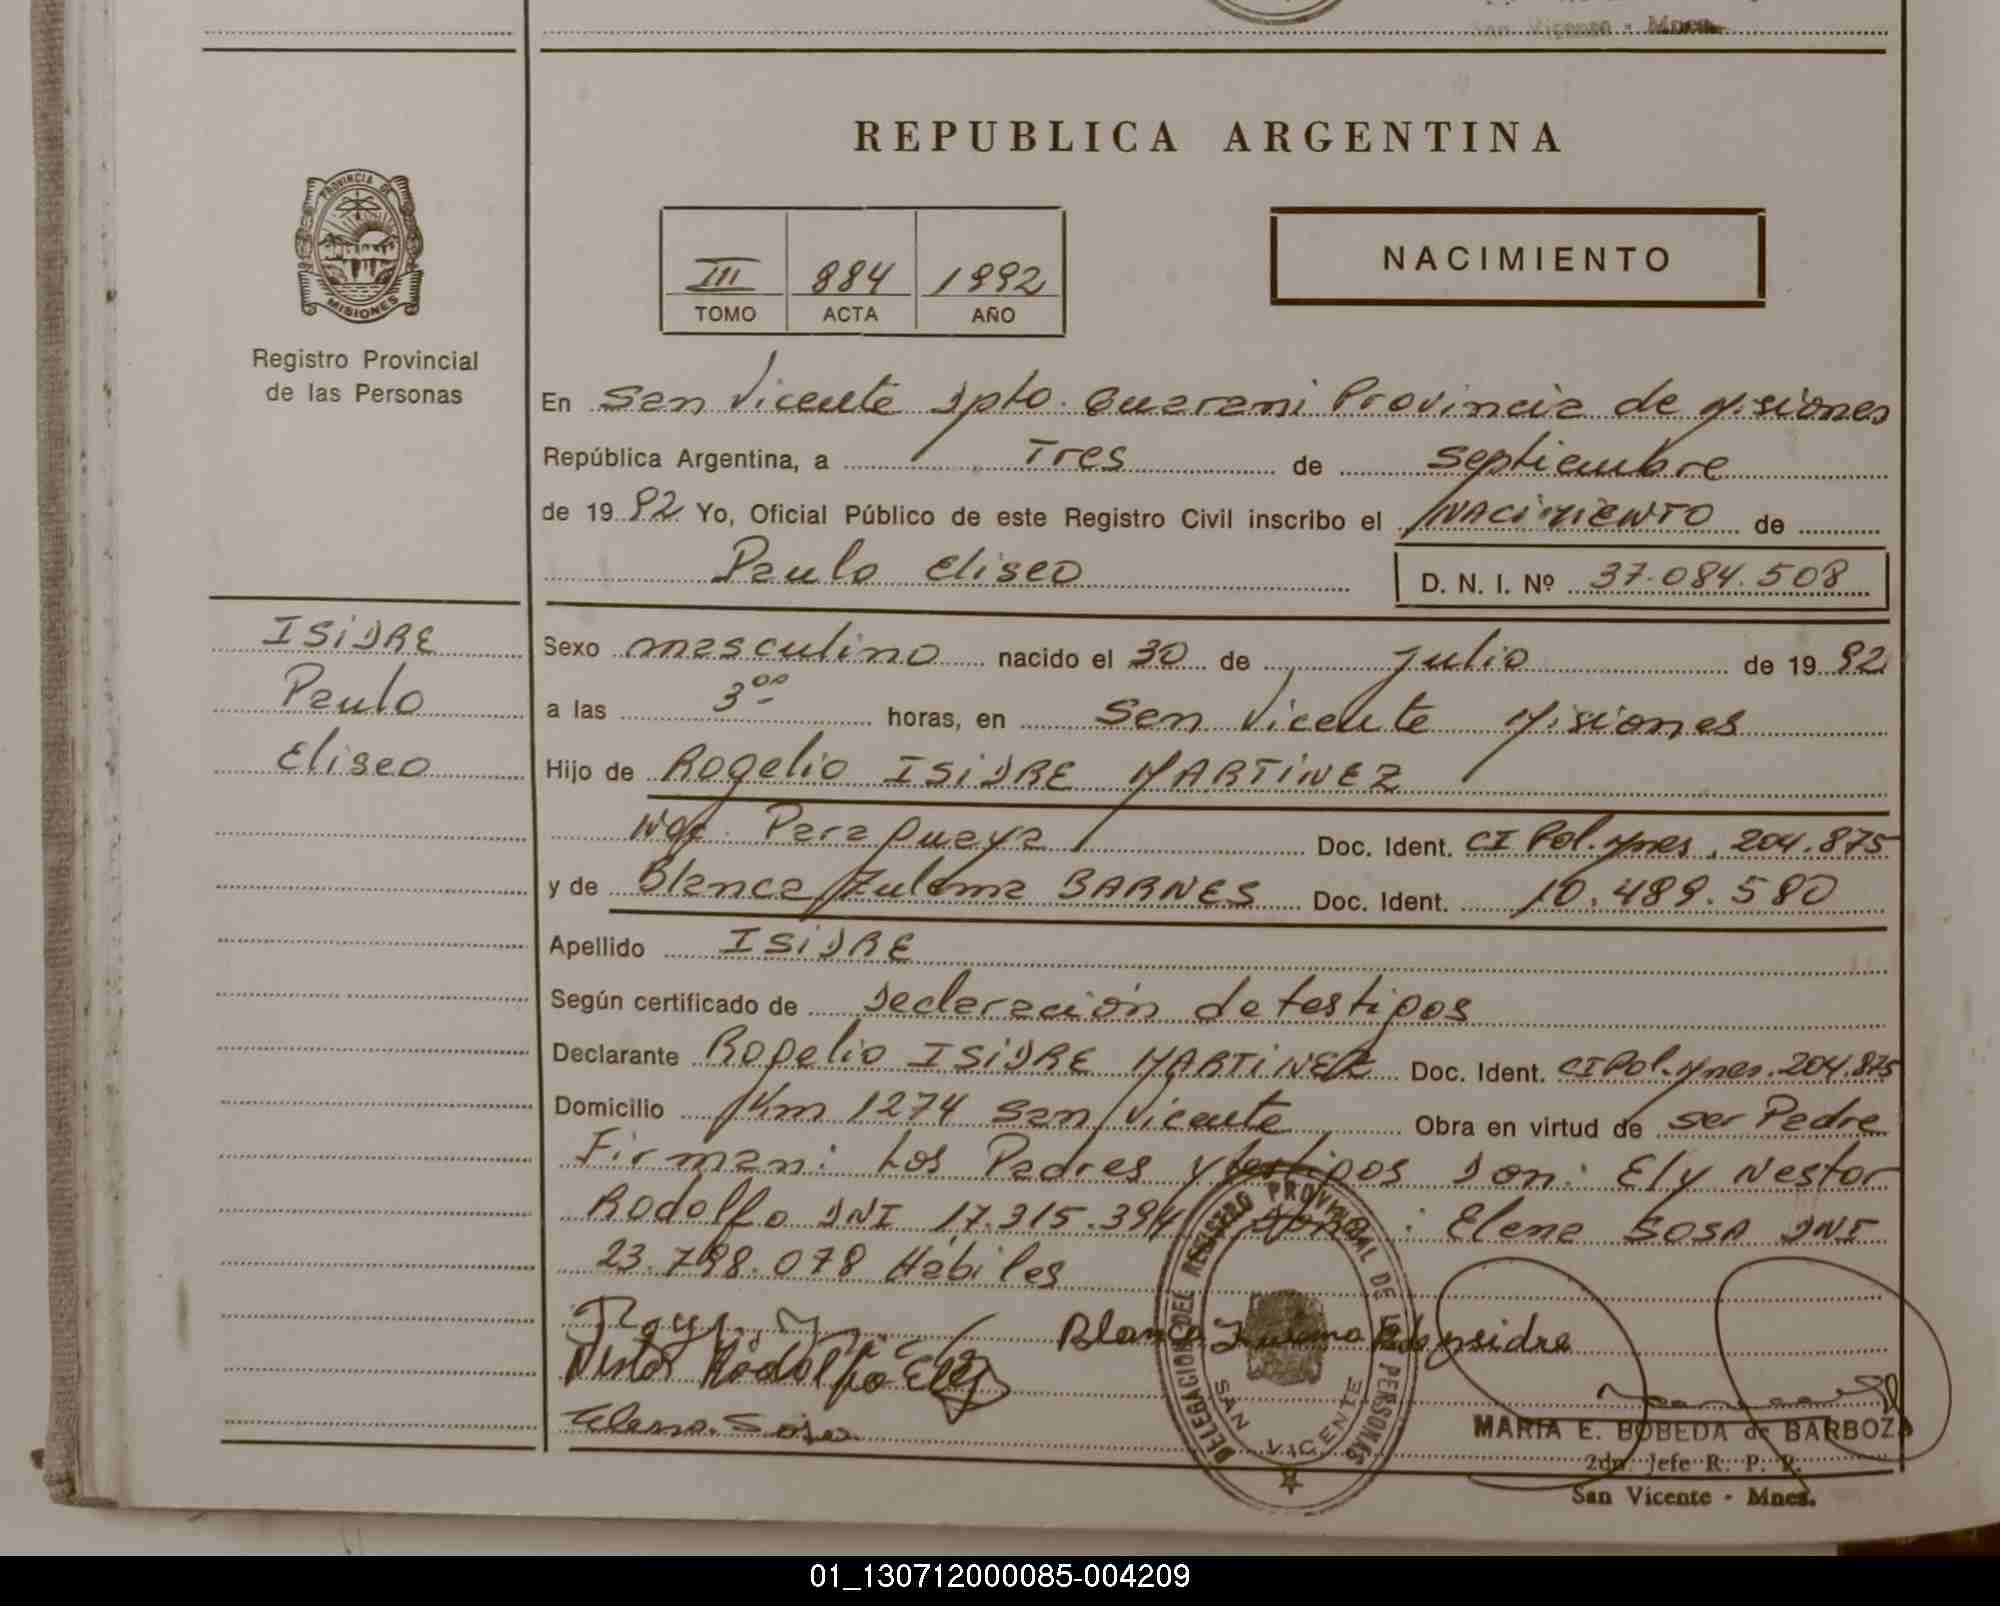 San Vicente - Mnes.
REPUBLICA ARGENTINA
PROVINCIA DE
MISIONES
Registro Provincial
de las Personas
III 884 1992
TOMO ACTA AÑO
NACIMIENTO
En San Vicente Dpto. Guarani Provincia de Misiones
República Argentina, a Tres de Septiembre
de 1992 Yo, Oficial Público de este Registro Civil inscribo el NACIMIENTO de
Paulo Eliseo D. N. I. Nº 37.084.508
ISIDRE
Paulo
Eliseo
Sexo masculino nacido el 30 de Julio de 1992
a las 3°° horas, en San Vicente Misiones
Hijo de Rogelio ISIDRE MARTINEZ
Nac. Paraguaya Doc. Ident. CI Pol. Mnes. 204.875
y de Blanca Zulema BARNES Doc. Ident. 10.489.580
Apellido ISIDRE
Según certificado de Declaración de testigos
Declarante Rogelio ISIDRE MARTINEZ Doc. Ident. CI Pol. Mnes. 204.875
Domicilio Km 1274 San Vicente Obra en virtud de ser Padre
Firman: Los Padres y testigos Don: Ely Nestor
Rodolfo DNI 17.315.394 : Elena SOSA DNI
23.798.078 Hábiles
Blanca Zulema
Nestor Rodolfo Ely
Elena Sosa
DELEGACION DEL REGISTRO PROVINCIAL DE LAS PERSONAS
SAN VICENTE
MARIA E. BOBEDA de BARBOZA
2do. Jefe R. P. P.
San Vicente - Mnes.
01_130712000085-004209